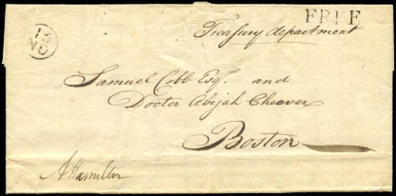 FREE
Treasury department
13
NO
Samuel Cobb Esqr. and
Doctor Abijah Cheever
Boston
A Hamilton